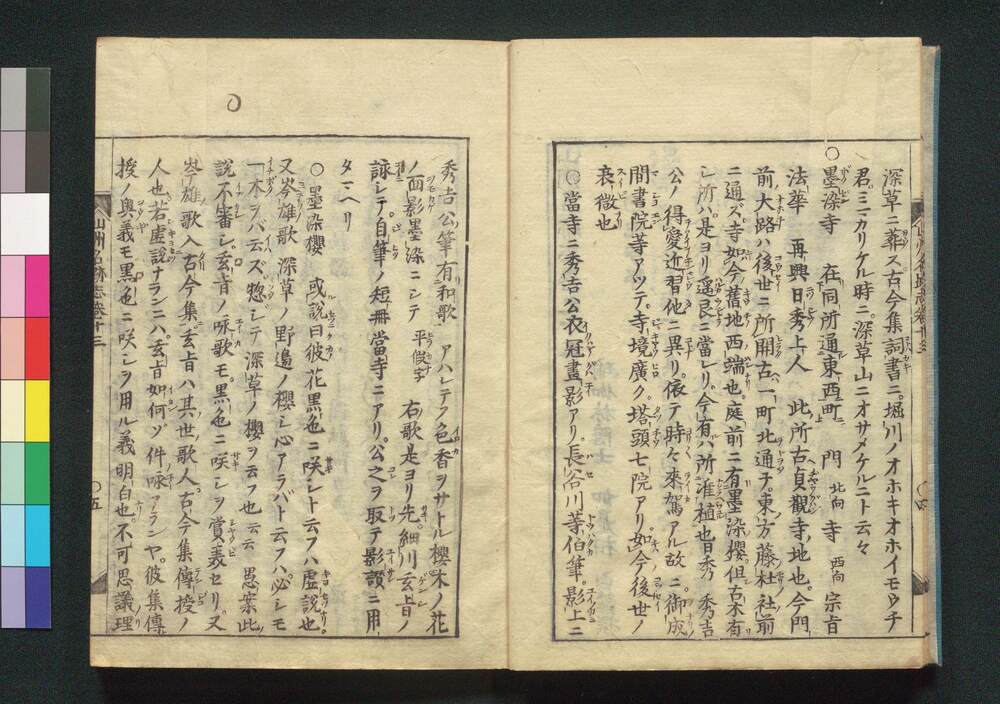 深草ニ葬ス古今集詞書ニ。堀川ノオホキオホイモウチ
君。ミマカリケル時ニ。深草山ニオサメケルニト云々
○墨染寺 在同所通東西町ニ 門 北向 寺 西向 宗旨
法華 再興日秀上人 此所古貞觀寺ノ地也。今門
前大路ハ後世ニ所開古ヘ一町北通テ。東ノ方藤杜社ノ前
ニ通ズ。寺如今舊地ノ西端也。庭前ニ有墨染櫻但古木有
シ所ハ。是ヨリ遥艮ニ當レリ。今有ハ所准植也昔秀吉
公ノ得愛近習他ニ異リ。依テ時々來駕アル故ニ。御成
間書院等アツテ。寺境廣ク。塔頭七院アリ如今後世ノ
衰微也
○當寺ニ秀吉公衣冠畫影アリ長谷川等伯筆。影上ニ
秀吉公筆有和歌 アハレテフ色香ヲサトル櫻木ノ花
ノ面影墨染ニシテ 平假字 右歌是ヨリ先。細川玄旨ノ
詠シテ。自筆ノ短冊當寺ニアリ。公之ヲ取テ影讃ニ用
タマヘリ
○墨染櫻 或說曰彼花黒色ニ咲シト云フハ虚說也
又岑雄歌 深草ノ野邊ノ櫻シ心アラバト云フハ必シモ
一木ヲバ云ズ惣シテ深草ノ櫻ヲ云フ也云云 愚案此
說不審シ。玄旨ノ咏歌モ。黒色ニ咲シヲ賞美セリ。又
岑雄歌入古今集玄旨ハ其世ノ歌人古今集傳授ノ
人也若虚說ナランニハ。玄旨如何ゾ件咏アランヤ。彼集傳
授ノ奥義モ黒色ニ咲シヲ用ル義明白也。不可思議ノ理
山州名跡志巻十三
○五